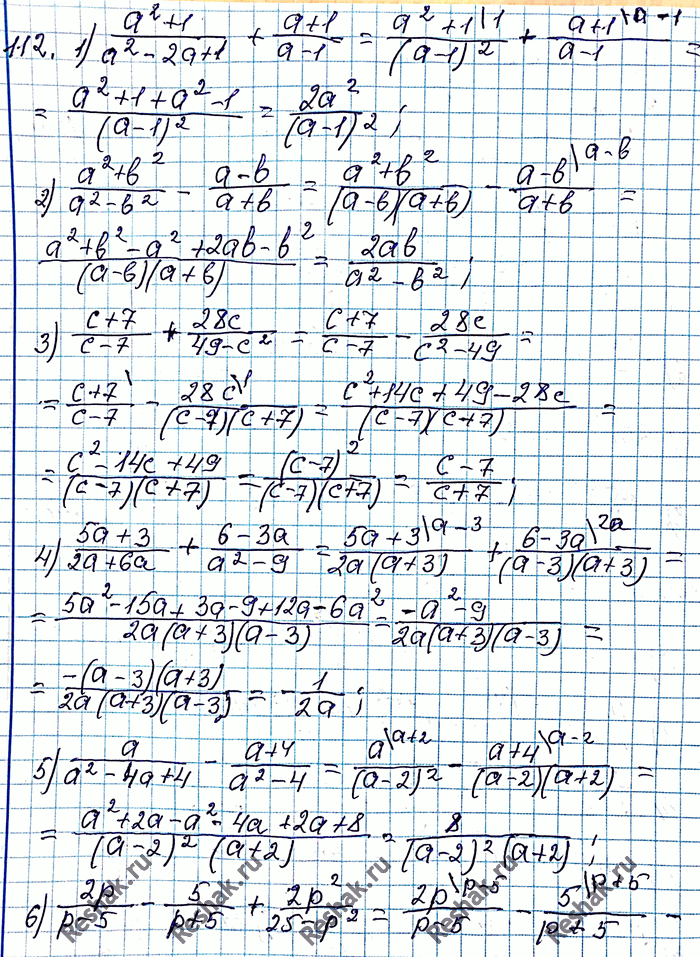 1.12. 1) (a²+1)/(a²-2a+1) + (a+1)/(a-1) = (a²+1\1)/((a-1)²) + (a+1\a-1)/(a-1) =
= (a²+1+a²-1)/((a-1)²) = 2a²/((a-1)²);
2) (a²+b²)/(a²-b²) - (a-b)/(a+b) = (a²+b²)/((a-b)(a+b)) - (a-b\a-b)/(a+b) =
(a²+b²-a²+2ab-b²)/((a-b)(a+b)) = 2ab/(a²-b²);
3) (c+7)/(c-7) + 28c/(49-c²) = (c+7)/(c-7) - 28c/(c²-49) =
= (c+7\)/(c-7) - (28c\1)/((c-7)(c+7)) = (c²+14c+49-28c)/((c-7)(c+7)) =
= (c²-14c+49)/((c-7)(c+7)) = (c-7)²/((c-7)(c+7)) = (c-7)/(c+7);
4) (5a+3)/(2a+6a) + (6-3a)/(a²-9) = (5a+3\a-3)/(2a(a+3)) + (6-3a\2a)/((a-3)(a+3)) =
= (5a²-15a+3a-9+12a-6a²)/(2a(a+3)(a-3)) = (-a²-9)/(2a(a+3)(a-3)) =
= (-(a-3)(a+3))/(2a(a+3)(a-3)) = -1/(2a);
5) a/(a²-4a+4) - (a+4)/(a²-4) = (a\a+2)/((a-2)²) - (a+4\a-2)/((a-2)(a+2)) =
= (a²+2a-a²-4a+2a+8)/((a-2)²(a+2)) = 8/((a-2)²(a+2));
6) 2p/(p-5) - 5/(p+5) + 2p²/(25-p²) = (2p\p+5)/(p-5) - (5\p+5)/(p+5) -
Reshak.ru Reshak.ru Reshak.ru Reshak.ru Reshak.ru